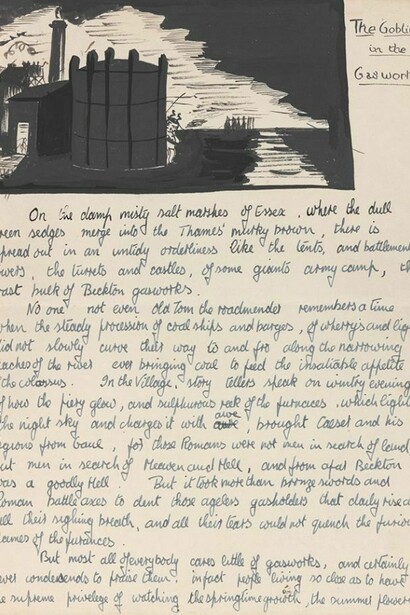 The Gobli
in the
Gaswort
On the damp misty salt marshes of Essex, where the dull
reen sedges merge into the Thames' murky brown, there is
pread out in an untidy orderliness like the tents, and battlement
owers, the turrets and castles, of some giants army camp, th
ast bulk of Beckton gasworks.
No one, not even old Tom the roadmender remembers a time
when the steady procession of coal ships and barges, of wherrys and lig
did not slowly curve their way to and fro along the narrowing
eaches of the river ever bringing coal to feed the insatiable appetite
f the colossus. In the Village, story tellers speak on wintry evening
of how the fiery glow, and sulphurous reek of the furnaces, which light
the night sky and charges it with awe, brought Caesar and his
egions from Gaul, for those Romans were not men in search of land
ut men in search of Heaven and Hell, and from afar Beckton
was a goodly Hell. But it took more than bronze swords and
Roman battle axes to dent those ageless gasholders that daily rise a
ll their sighing breath, and all their tears would not quench the furio
lames of the furnaces.
But most all of everybody cares little of gasworks, and certainly
ever condescends to praise them. infact people living so close as to have
e supreme privelege of watching the springtime growth, the summer flower